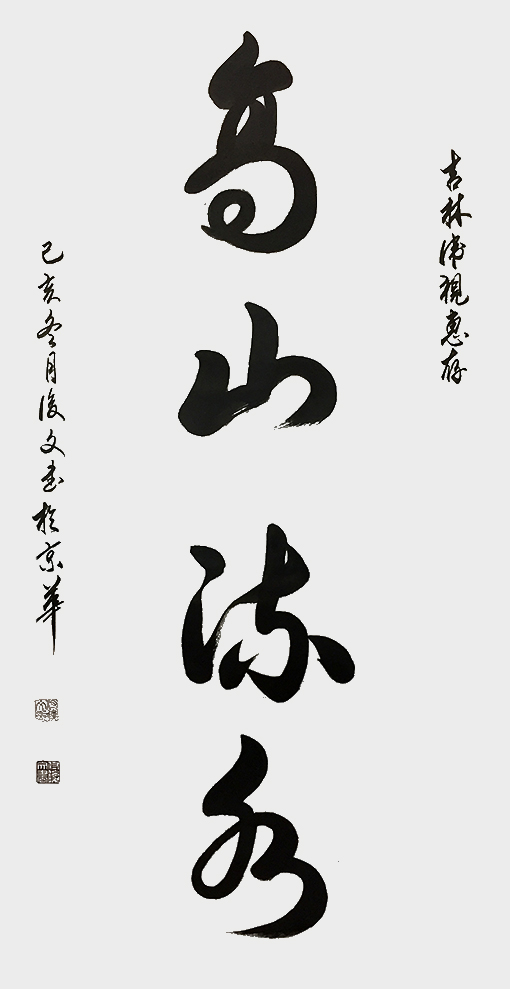 吉林卫视惠存
高山流水
己亥冬月俊文书於京華